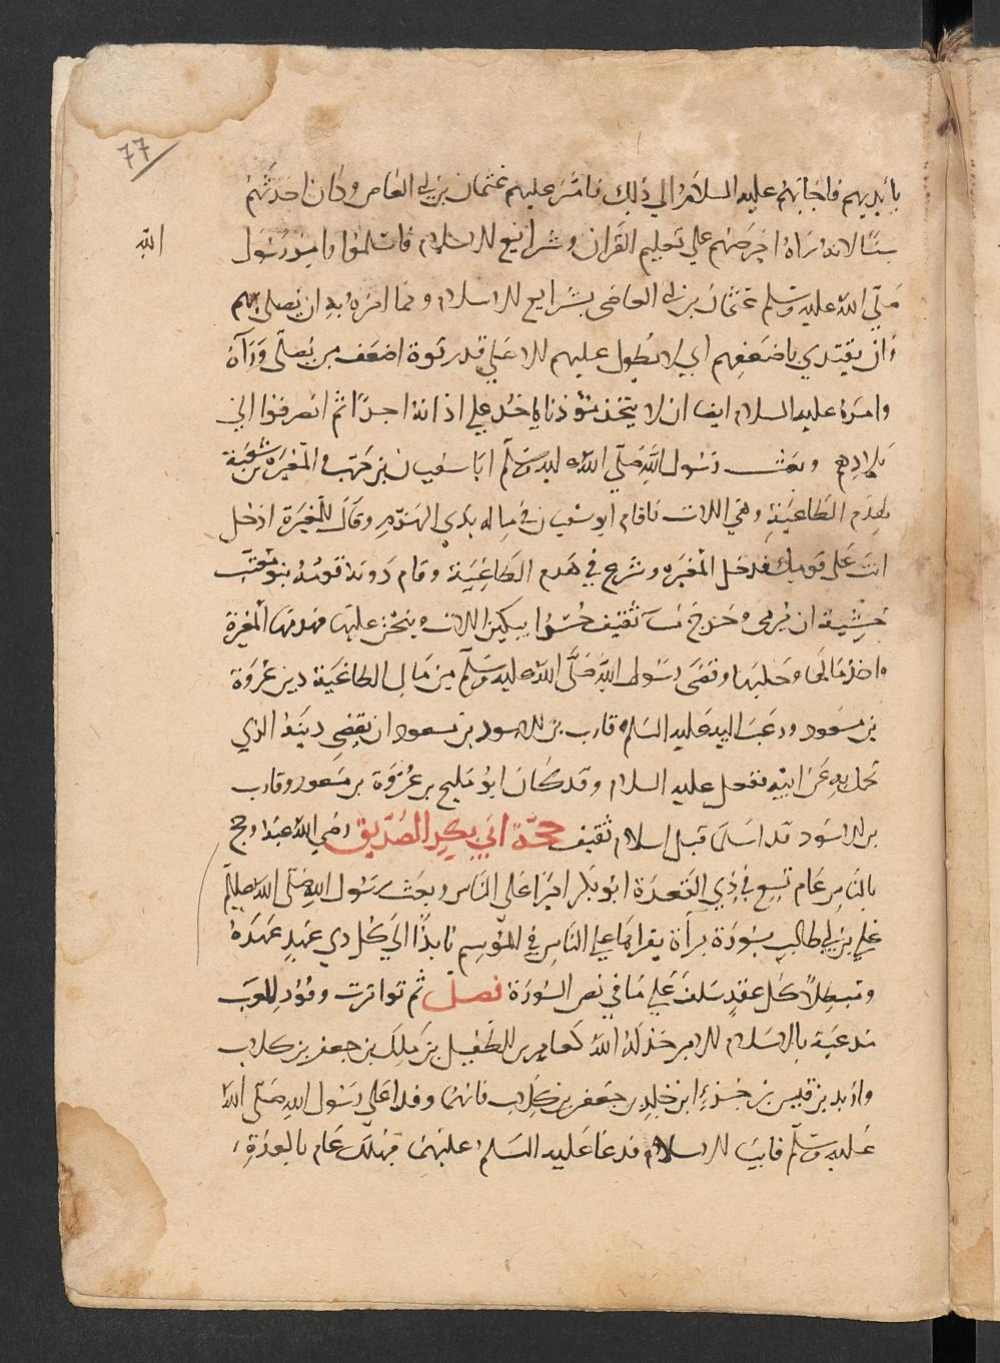 77
بأيديهم فاجابهم عليه السلام الي ذلك فامّر عليهم عثمان بن ابي العاص وكان احدثهم
سنًا لانه راه احرصهم علي تعليم القران وشرائع الاسلام فاسلموا وامر رسول
الله
صلّي الله عليه وسلم عثمان بن ابي العاصي بشرايع الاسلام ومما امره به ان يصلي بهم
وان يقتدي باضعفهم اي لا يطول عليهم الا علي قدر قوة اضعف من يصلّي وراه
وامره عليه السلام ايضا ان لا يتخذ مؤذنا ياخذ علي اذانه اجرًا ثم انصرفوا الي
بلادهم وبعث رسول الله صلّي الله عليه وسلّم ابا سفيان بن حرب والمغيرة بن شعبة
لهدم الطاغية وهي اللات فاقام ابو سفيان في ماله بذي الهدم وقال للمغيرة ادخل
انت علي قومك فدخل المغيره وشرع في هدم الطاغية وقام دونه قومه بنو معتب
خشية ان يرمى وخرج نسآ ثقيف حسرا يبكين اللات وينحن عليها فهدمها المغيرة
واخذ مالها وحليها وقضى رسول الله صلّى الله عليه وسلّم من مال الطاغية دين عروة
بن مسعود ورغب اليه عليه السلام قارب بن الاسود بن مسعود ان يقضي دين الذي
تحمل به عن ابيه ففعل عليه السلام وقد كان ابو مليح بن عروة بن مسعود وقارب
بن الاسود قد اسلما قبل اسلام ثقيف حجّة ابي بكر الصدّيق رضي الله عنه وحج
بالناس عام تسع في ذي القعدة ابو بكر اميرا على الناس وبعث رسول الله صلّى الله عليه وسلم
علي بن ابي طالب بسورة براة يقراها علي الناس في الموسم نابذًا الي كل ذي عهد عهده
ومبطلاً كل عقد سلف علي ما في نص السورة فصل ثم تواترت وفود العرب
مذعنة بالاسلام الا من خذله الله كعامر بن الطفيل بن ملك بن جعفر بن كلاب
واربد بن قيس بن جزء ابن خالد بن جعفر بن كلاب فانهما وفدا علي رسول الله صلّى الله
عليه وسلّم فابيا الاسلام فدعا عليه السلم عليهما فهلك عام بالغدّة